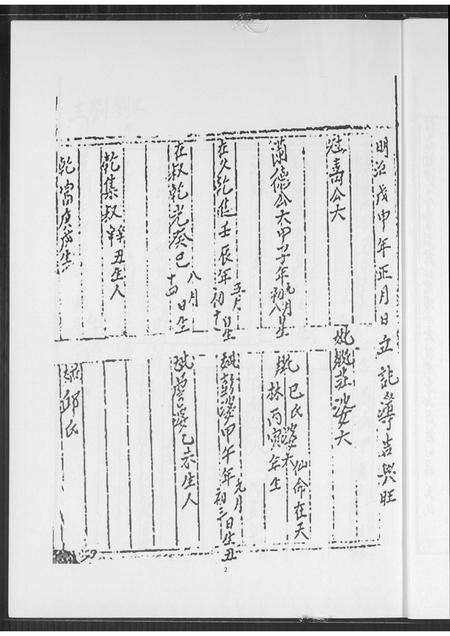 明治戊申年正月日立記簿吉兴旺
公大
妣莊婆大
蘭德公大甲子年九月初八日生
妣巳氏婆大仙命在天
林丙寅年生
壬辰年五月初十日生
彭婆甲午年九月初三日生丑
叔乾光癸巳八月十四日生
曾婆乙未生人
乾集叔辛丑生人
乾富戌生
邱氏
2